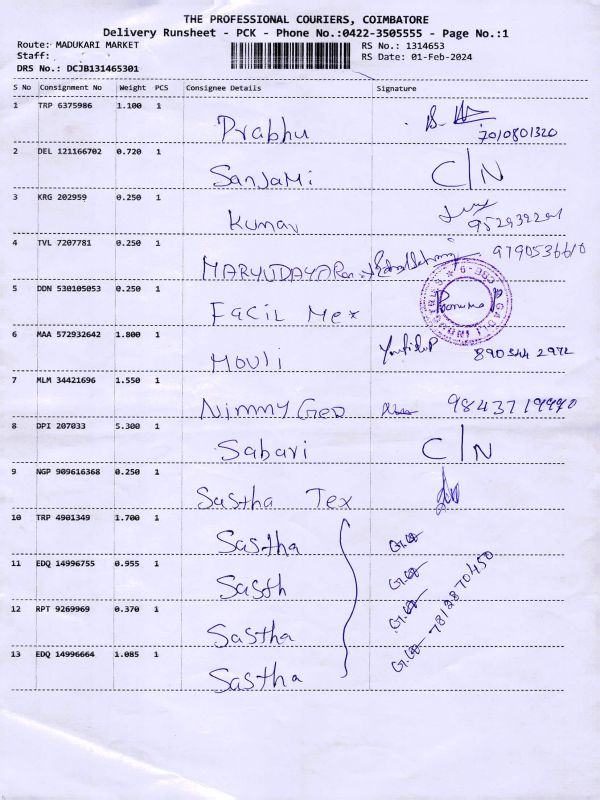 THE PROFESSIONAL COURIERS, COIMBATORE
Delivery Runsheet - PCK - Phone No.:0422-3505555 - Page No.:1
Route: MADUKARI MARKET
RS No.: 1314653
Staff:
RS Date: 01-Feb-2024
DRS No.: DCJB131465301
S No Consignment No Weight PCS Consignee Details Signature
1 TRP 6375986 1.100 1
Prabhu 7010801320
2 DEL 121166702 0.720 1
Sanjami C/N
3 KRG 202959 0.250 1
Kumar
4 TVL 7207781 0.250 1
9790536610
5 DDN 530105053 0.250 1
Facil Mex
6 MAA 572932642 1.800 1
Mouli
7 MLM 34421696 1.550 1
Nimmy Geo
8 DPI 207033 5.300 1
Sabari C/N
9 NGP 909616368 0.250 1
Sastha Tex
10 TRP 4901349 1.700 1
Sastha
11 EDQ 14996755 0.955 1
Sasth
12 RPT 9269969 0.370 1
Sastha 7812870450
13 EDQ 14996664 1.085 1
Sastha